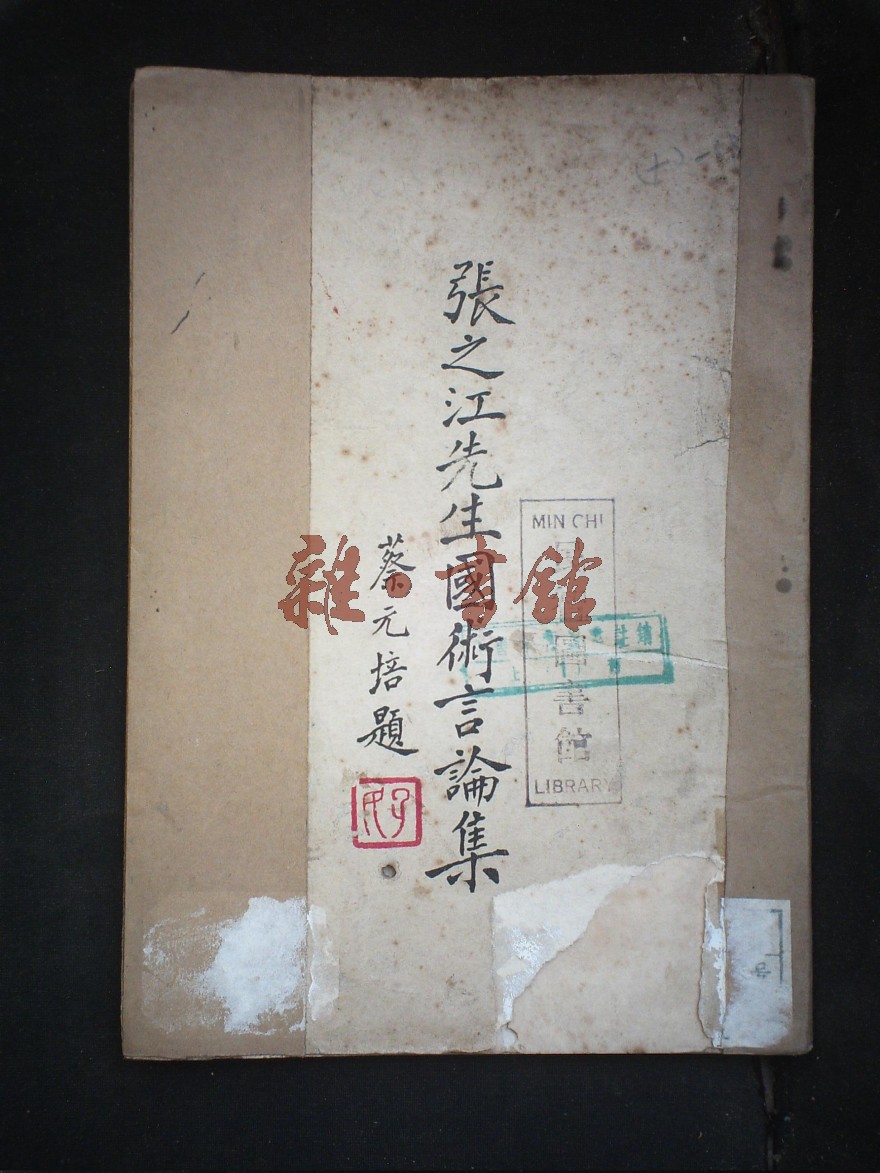 張之江先生國術言論集
蔡元培題
孑民
雜·書館
MIN CHI
圖書館
LIBRARY